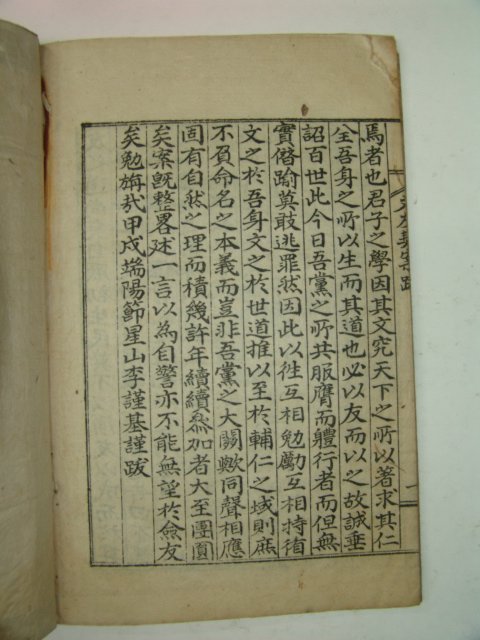 焉者也君子之學因其文究天下之所以著求其仁
全吾身之所以生而其道也必以友而以之故誠垂
詔百世此今日吾黨之所共服膺而軆行者而但無
實僭踰莫敢逃罪然因此以徃互相勉勵互相持循
文之於吾身文之於世道推以至於輔仁之域則庶
不負命名之本義而豈非吾黨之大關歟同聲相應
固有自然之理而積幾許年續續叅加者大至團圓
矣案旣整畧述一言以為自警亦不能無望於僉友
矣勉旃㢤甲戌端陽節星山李謹基謹跋